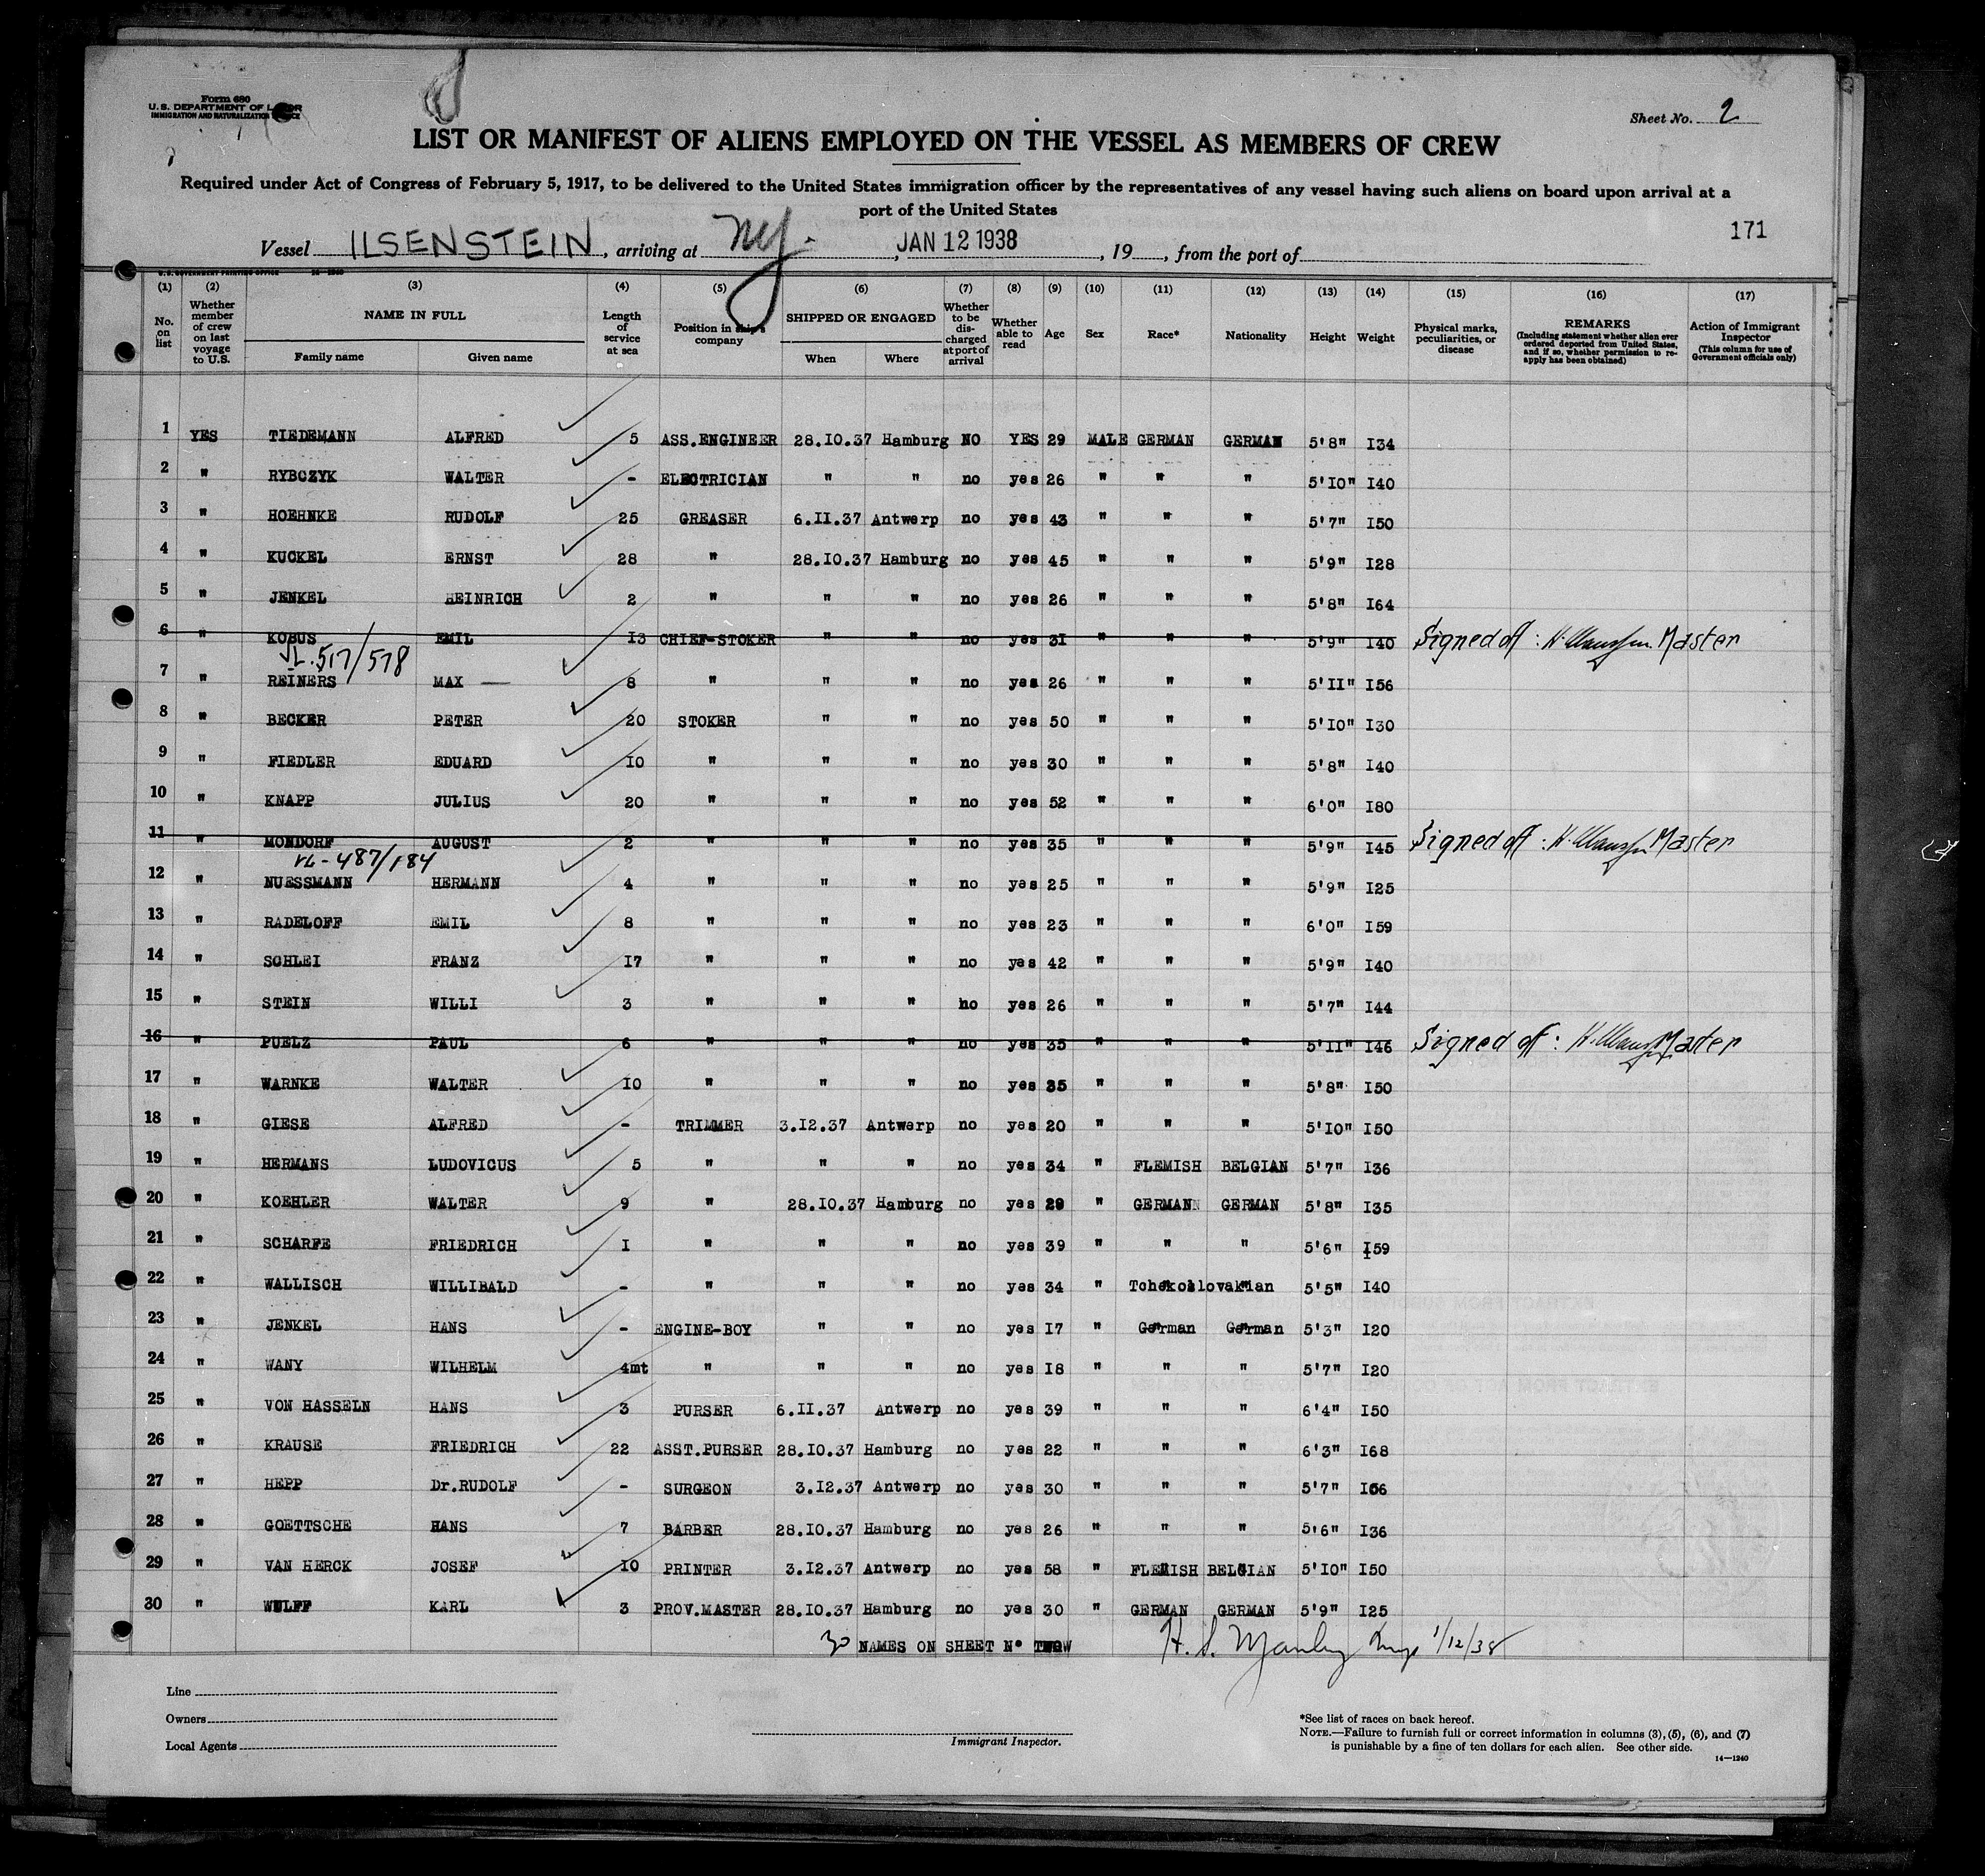 Form 680
U. S. DEPARTMENT OF LABOR
IMMIGRATION AND NATURALIZATION SERVICE
Sheet No. 2
LIST OR MANIFEST OF ALIENS EMPLOYED ON THE VESSEL AS MEMBERS OF CREW
Required under Act of Congress of February 5, 1917, to be delivered to the United States immigration officer by the representatives of any vessel having such aliens on board upon arrival at a
port of the United States
171
Vessel ILSENSTEIN, arriving at NY., JAN 12 1938, 19, from the port of
U.S. GOVERNMENT PRINTING OFFICE
(1) (2) (3) (4) (5) (6) (7) (8) (9) (10) (11) (12) (13) (14) (15) (16) (17)
No. on list
Whether member of crew on last voyage to U.S.
NAME IN FULL
Family name Given name
Length of service at sea
Position in ship's company
SHIPPED OR ENGAGED
When Where
Whether to be discharged at port of arrival
Whether able to read
Age
Sex
Race*
Nationality
Height
Weight
Physical marks, peculiarities, or disease
REMARKS
(Including statement whether alien ever ordered deported from United States, and if so, whether permission to reapply has been obtained)
Action of Immigrant Inspector
(This column for use of Government officials only)
1 YES TIEDEMANN ALFRED 5 ASS.ENGINEER 28.I0.37 Hamburg NO YES 29 MALE GERMAN GERMAN 5'8" I34
2 " RYBCZYK WALTER - ELECTRICIAN " " no yes 26 " " " 5'I0" I40
3 " HOEHNKE RUDOLF 25 GREASER 6.II.37 Antwerp no yes 43 " " " 5'7" I50
4 " KUCKEL ERNST 28 " 28.I0.37 Hamburg no yes 45 " " " 5'9" I28
5 " JENKEL HEINRICH 2 " " " no yes 26 " " " 5'8" I64
6 " KOBUS EMIL I3 CHIEF-STOKER " " no yes 3I " " " 5'9" I40 Signed off : Master
517/578
7 " REINERS MAX — 8 " " " no yes 26 " " " 5'II" I56
8 " BECKER PETER 20 STOKER " " no yes 50 " " " 5'I0" I30
9 " FIEDLER EDUARD I0 " " " no yes 30 " " " 5'8" I40
10 " KNAPP JULIUS 20 " " " no yes 52 " " " 6'0" I80
11 " MONDORF AUGUST 2 " " " no yes 35 " " " 5'9" I45 Signed off : Master
487/184
12 " NUESSMANN HERMANN 4 " " " no yes 25 " " " 5'9" I25
13 " RADELOFF EMIL 8 " " " no yes 23 " " " 6'0" I59
14 " SCHLEI FRANZ I7 " " " no yes 42 " " " 5'9" I40
15 " STEIN WILLI 3 " " " no yes 26 " " " 5'7" I44
16 " PUELZ PAUL 6 " " " no yes 35 " " " 5'II" I46 Signed off : Master
17 " WARNKE WALTER I0 " " " no yes 35 " " " 5'8" I50
18 " GIESE ALFRED - TRIMMER 3.I2.37 Antwerp no yes 20 " " " 5'I0" I50
19 " HERMANS LUDOVICUS 5 " " " no yes 34 " FLEMISH BELGIAN 5'7" I36
20 " KOEHLER WALTER 9 " 28.I0.37 Hamburg no yes 29 " GERMAN GERMAN 5'8" I35
21 " SCHARFE FRIEDRICH I " " " no yes 39 " " " 5'6" I59
22 " WALLISCH WILLIBALD - " " " no yes 34 " Tchekoslovakian 5'5" I40
23 " JENKEL HANS - ENGINE-BOY " " no yes I7 " German German 5'3" I20
24 " WANY WILHELM 4mt " " " no yes I8 " " " 5'7" I20
25 " VON HASSELN HANS 3 PURSER 6.II.37 Antwerp no yes 39 " " " 6'4" I50
26 " KRAUSE FRIEDRICH 22 ASST.PURSER 28.I0.37 Hamburg no yes 22 " " " 6'3" I68
27 " HEPP Dr.RUDOLF - SURGEON 3.I2.37 Antwerp no yes 30 " " " 5'7"
28 " GOETTSCHE HANS 7 BARBER 28.I0.37 Hamburg no yes 26 " " " 5'6" I36
29 " VAN HERCK JOSEF I0 PRINTER 3.I2.37 Antwerp no yes 58 " FLEMISH BELGIAN 5'I0" I50
30 " WULFF KARL 3 PROV.MASTER 28.I0.37 Hamburg no yes 30 " GERMAN GERMAN 5'9" I25
30 NAMES ON SHEET N° TWO
H. S. Manley Insp 1/12/38
Line
Owners
Local Agents
Immigrant Inspector.
*See list of races on back hereof.
NOTE.—Failure to furnish full or correct information in columns (3), (5), (6), and (7)
is punishable by a fine of ten dollars for each alien. See other side.
14—1240